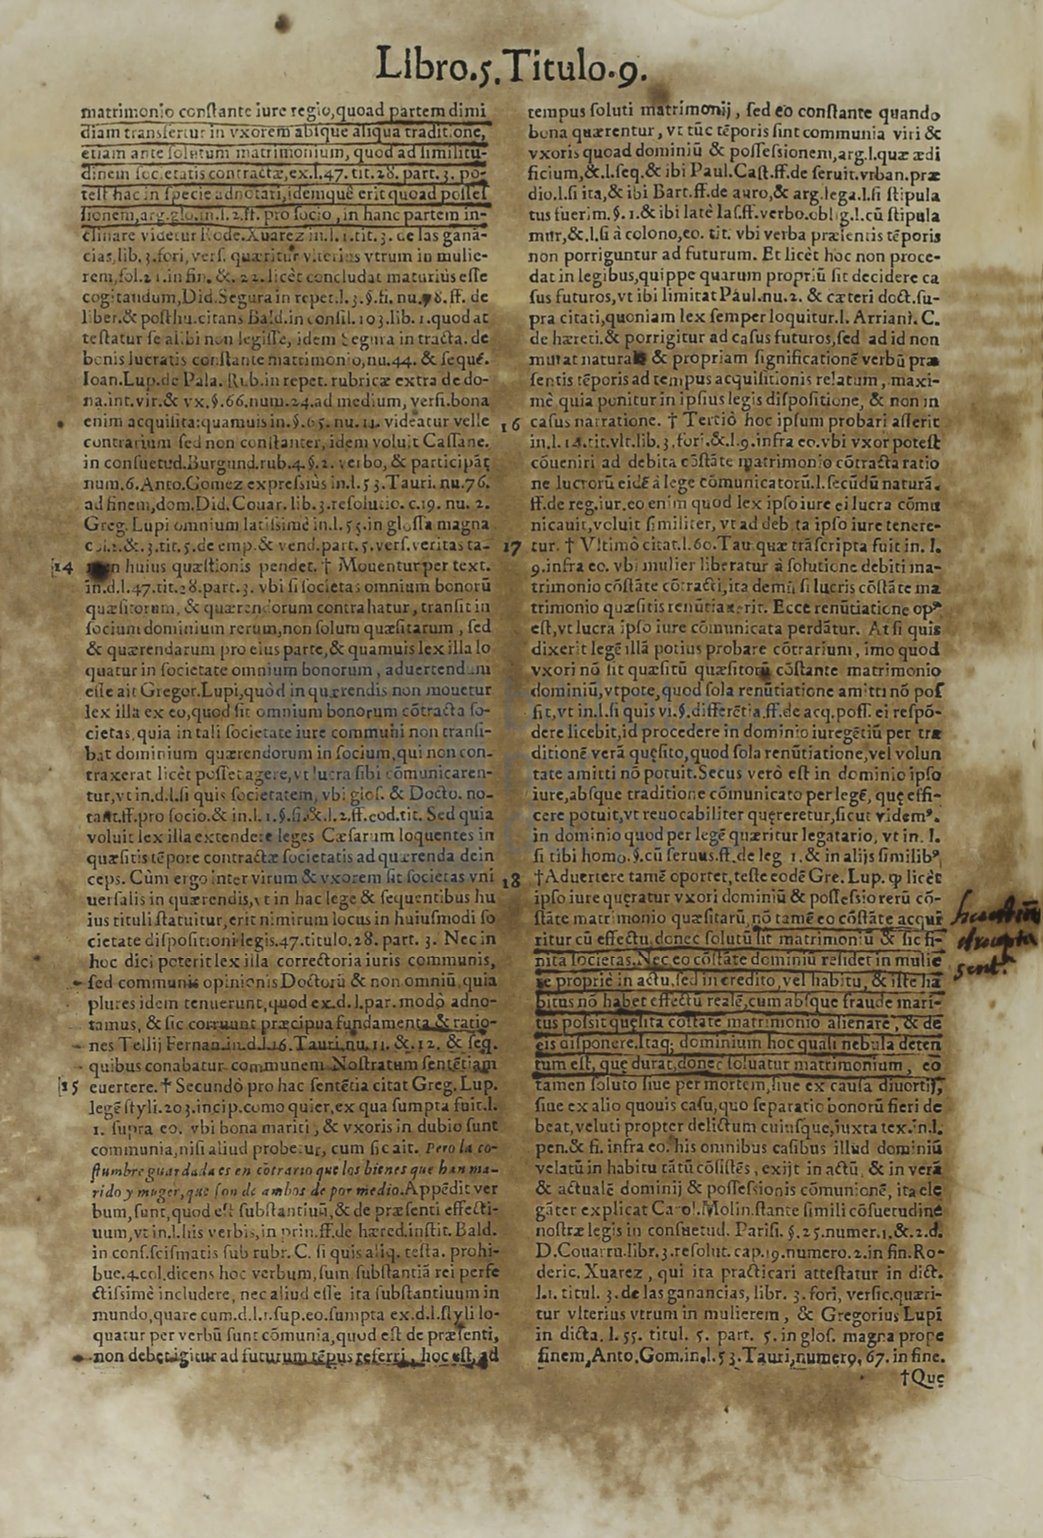 Libro.5.Titulo.9.
matrimonio constante iure regio,quoad partem dimi
diam transfertur in vxorem absque aliqua traditione,
etiam ante solutum matrimonium, quod ad similitu-
dinem societatis contractæ,ex.l.47.tit.28.part.3.po-
test hac in specie adnotari,idemque erit quoad posses
sionem,arg.glo.in.l.2.ff.pro socio,in hanc partem in-
clinare videtur Rode.Xuarez in.l.1.tit.3. de las ganā-
cias,lib.3.fori, vers. quæritur vlterius vtrum in mulie-
rem,fol.21.in fin. &. 22. licèt concludat maturiùs esse
cogitandum,Did.Segura in repet.l.3.§.fi.nu.98.ff. de
liber.& posthu.citans Bald.in consil.103.lib.1.quod at
testatur se alibi non legisse, idem Segura in tracta. de
bonis lucratis constante matrimonio,nu.44. & sequē.
Ioan.Lup.de Pala. Rub.in repet. rubricæ extra de do-
na.int.vir.& vx.§.66.num.24.ad medium, versi.bona
enim acquisita:quamuis in.§.65.nu.11. videatur velle
contrarium sed non constanter, idem voluit Cassane.
in consuetud.Burgund.rub.4.§.2. verbo, & participāt
num.6.Anto.Gomez expressiùs in.l.53.Tauri.nu.76.
ad finem,dom.Did.Couar.lib.3.resolutio.c.19. nu. 2.
Greg.Lupi omnium latissimè in.l.53.in glossa magna
&. 3.tit.5.de emp.& vend.part.5.vers.veritas ta-
14 huius quæstionis pendet.† Mouentur per text.
in.d.l.47.tit.28.part.3. vbi si societas omnium bonorū
quæsitorum, & quærendorum contrahatur, transit in
socium dominium rerum,non solum quæsitarum, sed
& quærendarum pro eius parte,& quamuis lex illa lo
quatur in societate omnium bonorum, aduertendum
esse ait Gregor.Lupi,quòd in quærendis non mouetur
lex illa ex eo,quod sit omnium bonorum cōtracta so-
cietas,quia in tali societate iure communi non transi-
bat dominium quærendorum in socium,qui non con-
traxerat licèt posset agere,vt lucra sibi cōmunicaren-
tur,vt in.d.l.si quis societatem, vbi glos. & Docto. no-
tant.ff.pro socio.& in.l.1.§.si.&.l.2.ff.eod.tit. Sed quia
voluit lex illa extendere leges Cæsarum loquentes in
quæsitis tēpore contractæ societatis ad quærenda dein
ceps. Cùm ergo inter virum & vxorem sit societas vni
uersalis in quærendis,vt in hac lege & sequentibus hu
ius tituli statuitur,erit nimirum locus in huiusmodi so
cietate dispositioni legis.47.titulo.28. part. 3. Nec in
hoc dici poterit lex illa correctoria iuris communis,
sed communis opinionis Doctorū & non omniū,quia
plures idem tenuerunt,quod ex.d.l.par.modò adno-
tamus, & sic corruunt præcipua fundamenta & ratio-
nes Tellij Fernan.in.d.l.16.Tauri.nu.11. &.12. & seq.
quibus conabatur communem Nostratum sentētiam
15 euertere.† Secundò pro hac sentētia citat Greg.Lup.
legē styli.203.incip.como quier,ex qua sumpta fuit.l.
1. supra eo. vbi bona mariti, & vxoris in dubio sunt
communia,nisi aliud probetur, cum sic ait. Pero la co-
stumbre guardada es en cōtrario que los bienes que han ma-
rido y muger,que son de ambos de por medio.Appēdit ver
bum,sunt,quod est substantiuū,& de præsenti effecti-
uum,vt in.l.his verbis,in prin.ff.de hæred.instit. Bald.
in cons.scismatis sub rubr.C. si quis aliq. testa. prohi-
bue.4.col.dicens hoc verbum,sum substantiā rei perfe
ctissimè includere, nec aliud esse ita substantiuum in
mundo,quare cum.d.l.1.sup.eo.sumpta ex.d.l.styli lo-
quatur per verbū sunt cōmunia,quod est de præsenti,
non debet igitur ad futurum tēpus referri, hoc est, ad
tempus soluti matrimonij, sed eo constante quando
bona quærentur, vt tūc tēporis sint communia viri &
vxoris quoad dominiū & possessionem,arg.l.quæ ædi
ficium,&.l.seq.& ibi Paul.Cast.ff.de seruit.vrban.præ
dio.l.si ita,& ibi Bart.ff.de auro,& arg.lega.l.si stipula
tus fuerim.§.1.& ibi latè Ias.ff.verbo.oblig.l.cū stipula
mur,&.l.si à colono,eo. tit. vbi verba præsentis tēporis
non porriguntur ad futurum. Et licèt hoc non proce-
dat in legibus,quippe quarum propriū sit decidere ca
sus futuros,vt ibi limitat Paul.nu.2. & cæteri doct.su-
pra citati,quoniam lex semper loquitur.l. Arriani. C.
de hæreti.& porrigitur ad casus futuros,sed ad id non
mutat naturalē & propriam significationē verbū præ
sentis tēporis ad tempus acquisitionis relatum, maxi-
mè quia ponitur in ipsius legis dispositione, & non in
16 casus narratione. † Tertiò hoc ipsum probari asserit
in.l.14.tit.vlt.lib.3.fori.&.l.9.infra eo.vbi vxor potest
cōueniri ad debita cōstāte matrimonio cōtracta ratio
ne lucrorū eidē à lege cōmunicatorū.l.secūdū naturā.
ff.de reg.iur.eo enim quod lex ipso iure ei lucra cōmu
nicauit,voluit similiter, vt ad debita ipso iure tenere-
17 tur. † Vltimò citat.l.60.Tau.quæ trāscripta fuit in. l.
9.infra eo. vbi mulier liberatur à solutione debiti ma-
trimonio cōstāte cōtracti,ita demū si lucris cōstāte ma
trimonio quæsitis renūtiauerit. Ecce renūtiatione op⁹
est,vt lucra ipso iure cōmunicata perdātur. At si quis
dixerit legē illā potius probare cōtrarium, imo quod
vxori nō sit quæsitū quæsitorū cōstante matrimonio
dominiū,vtpote,quod sola renūtiatione amitti nō pos
sit,vt in.l.si quis vi.§.differētia.ff.de acq.poss. ei respō-
dere licebit,id procedere in dominio iuregētiū per tra
ditionē verā quęsito,quod sola renūtiatione,vel volun
tate amitti nō potuit.Secus verò est in dominio ipso
iure,absque traditione cōmunicato per legē, quę effi-
cere potuit,vt reuocabiliter quęreretur,sicut videm⁹.
in dominio quod per legē quæritur legatario, vt in. l.
si tibi homo.§.cū seruus.ff.de leg 1.& in alijs similib⁹
18 †Aduertere tamē oportet,teste eodē Gre.Lup. ꝙ licèt
ipso iure quęratur vxori dominiū & possessio rerū cō-
stāte matrimonio quæsitarū,nō tamē eo cōstāte acqui
ritur cū effectu,donec solutū sit matrimoniū & sic fi-
nita societas.Nec eo cōstāte dominiū residet in mulie
re propriè in actu,sed in credito,vel habitu,& iste ha
bitus nō habet effectū realē,cum absque fraude mari-
tus possit quęsita cōstāte matrimonio alienare, & de
eis disponere.Itaq; dominium hoc quasi nebula deten
tum est, quę durat,donec soluatur matrimonium, eo
tamen soluto siue per mortem,siue ex causa diuortij,
siue ex alio quouis casu,quo separatio bonorū fieri de
beat,veluti propter delictum cuiusque,iuxta tex.in.l.
pen.& fi. infra eo. his omnibus casibus illud dominiū
velatū in habitu tātū cōsistēs, exijt in actū, & in verā
& actualē dominij & possessionis cōmunionē, ita ele
gāter explicat Carol.Molin.stante simili cōsuetudine
nostræ legis in consuetud. Parisi. §.25.numer.1.&.2.d.
D.Couarru.libr.3.resolut. cap.19.numero.2.in fin. Ro-
deric. Xuarez, qui ita practicari attestatur in dict.
l.1. titul. 3. de las ganancias, libr. 3. fori, versic.quæri-
tur vlterius vtrum in mulierem, & Gregorius Lupi
in dicta. l. 55. titul. 5. part. 5. in glos. magna prope
finem,Anto.Gom.in.l.53.Tauri,numero.67.in fine.
†Quę